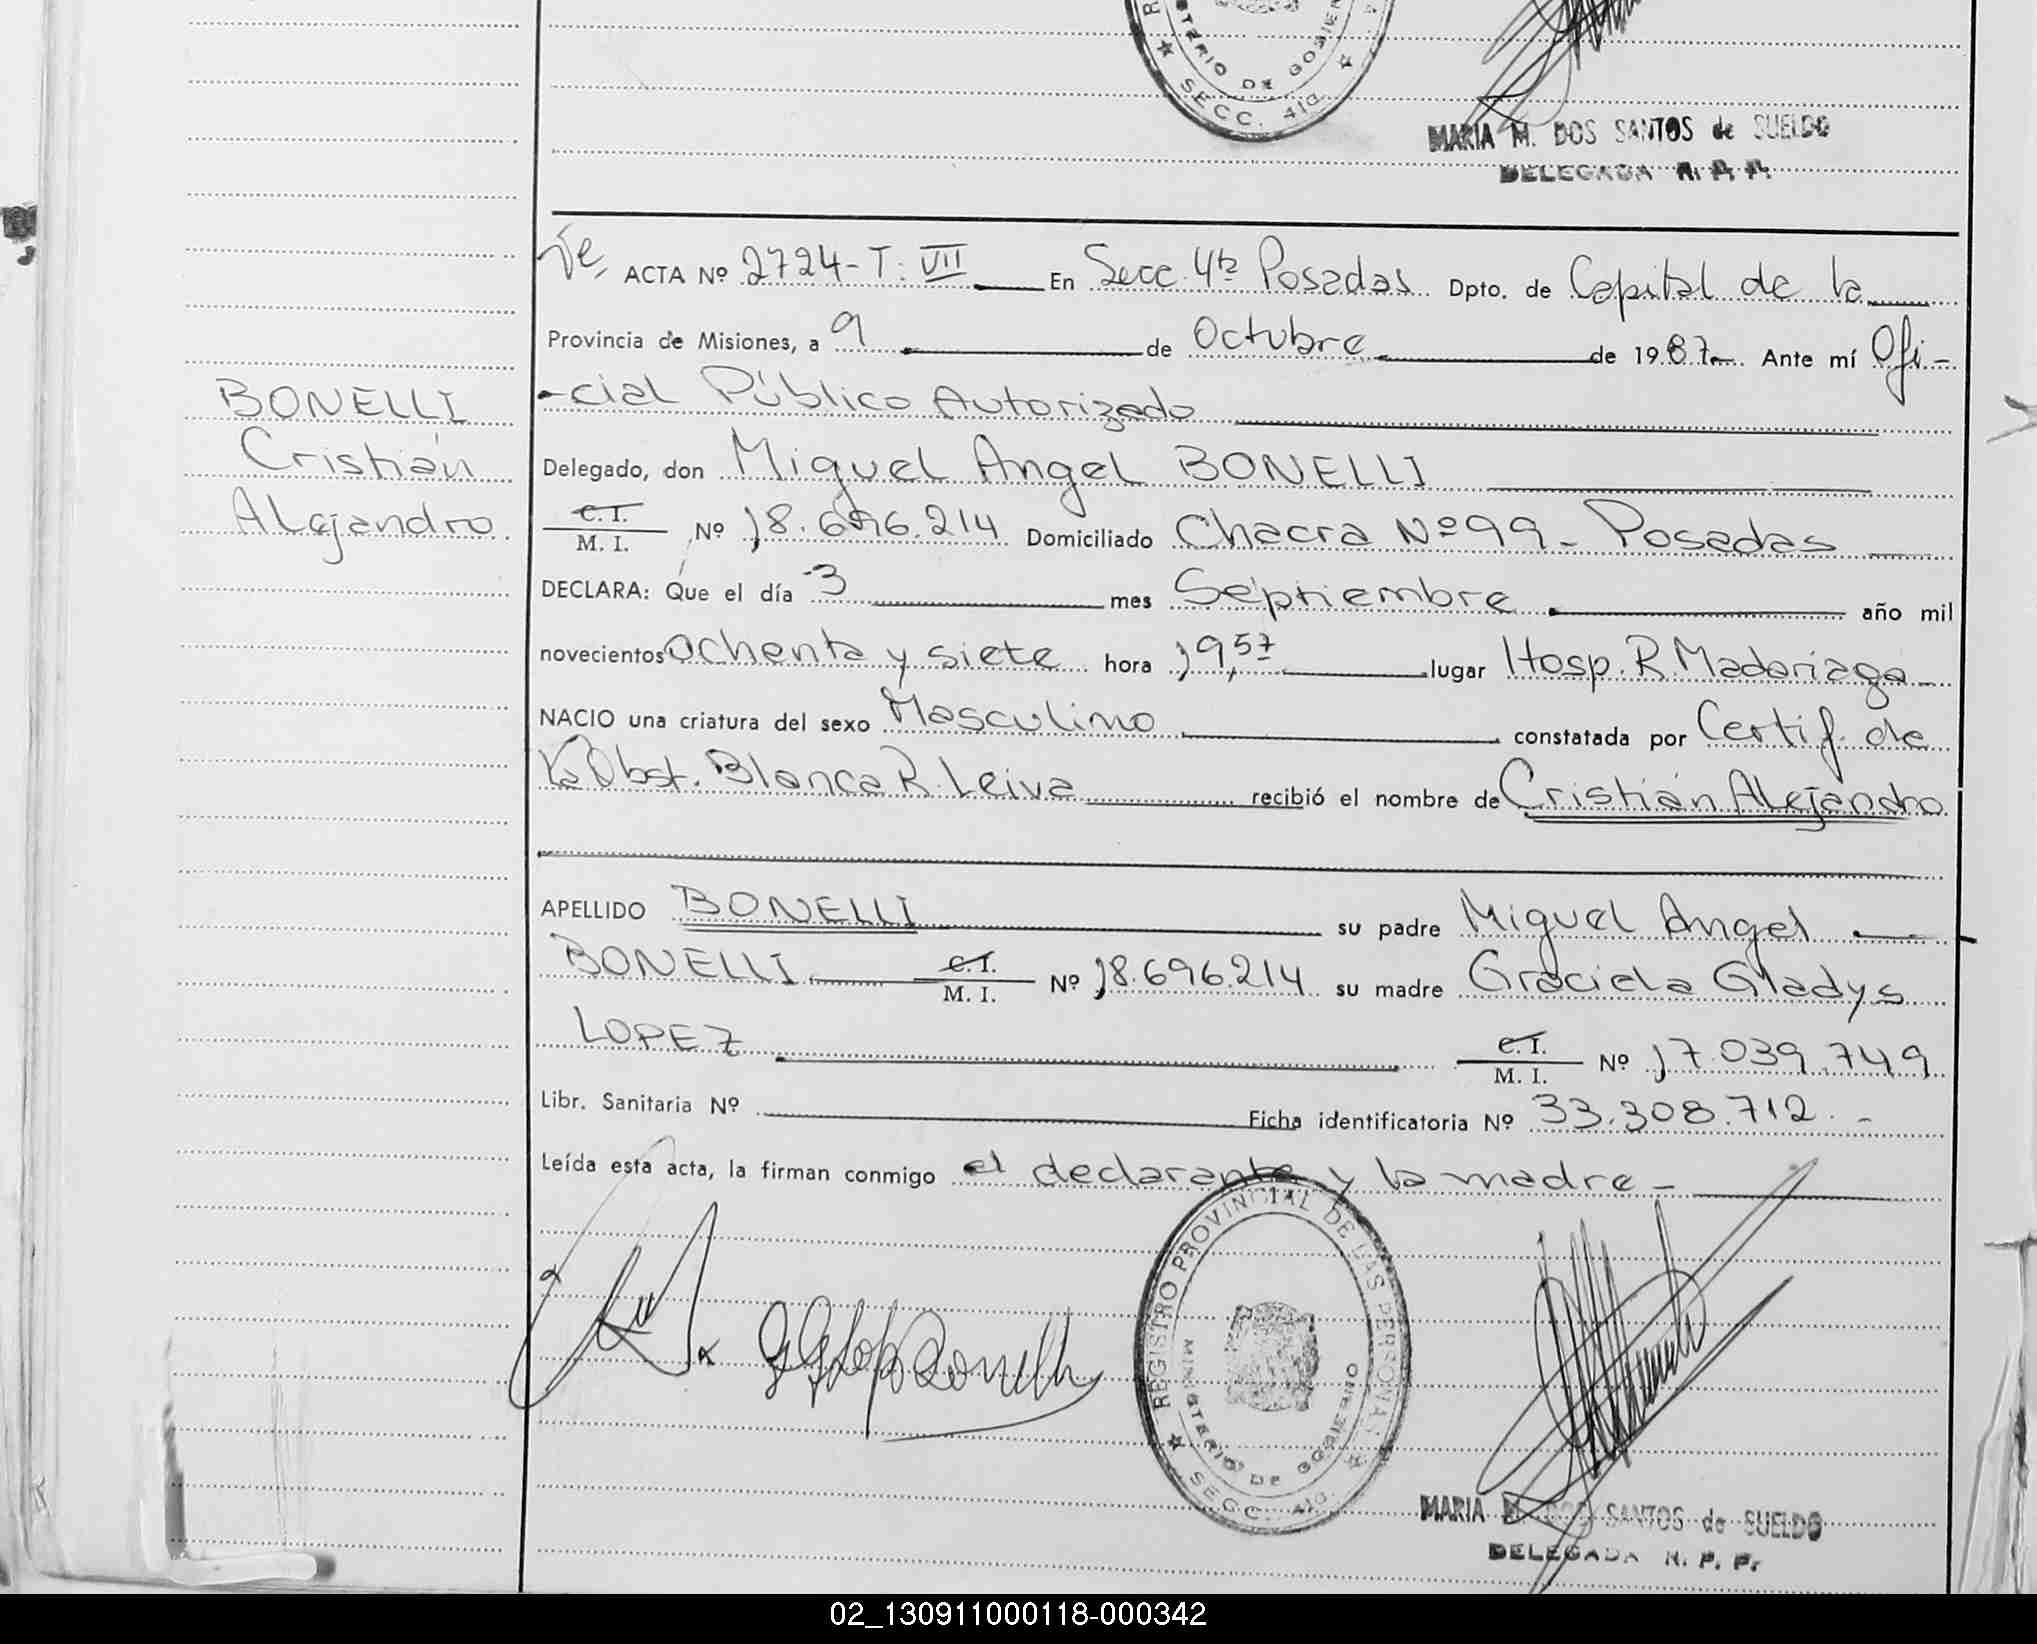 STERIO DE GOBIER
SECC. 4ta.
MARIA M. DOS SANTOS de SUELDO
DELEGADA R. P. P.
ACTA Nº 2724-T: VII En Secc. 4ta Posadas Dpto. de Capital de la
Provincia de Misiones, a 9 de Octubre de 1987 Ante mí Ofi-
BONELLI
-cial Público Autorizado
Cristián
Delegado, don Miguel Angel BONELLI
Alejandro
C.I.
M. I. Nº 18.696.214 Domiciliado Chacra Nº 99 - Posadas
DECLARA: Que el día 3 mes Septiembre año mil
novecientos Ochenta y siete hora 19,57 lugar Hosp. R. Madariaga
NACIO una criatura del sexo Masculino constatada por Certif. de
la Obst. Blanca R. Leiva recibió el nombre de Cristián Alejandro
APELLIDO BONELLI su padre Miguel Angel
BONELLI C.I. M. I. Nº 18.696.214 su madre Graciela Gladys
LOPEZ C.I. M. I. Nº 17.039.749
Libr. Sanitaria Nº Ficha identificatoria Nº 33.308.712.-
Leída esta acta, la firman conmigo el declarante y la madre -
REGISTRO PROVINCIAL DE LAS PERSONAS
MINISTERIO DE GOBIERNO
SECC. 4ta.
MARIA M. DOS SANTOS de SUELDO
DELEGADA R. P. P.
02_130911000118-000342